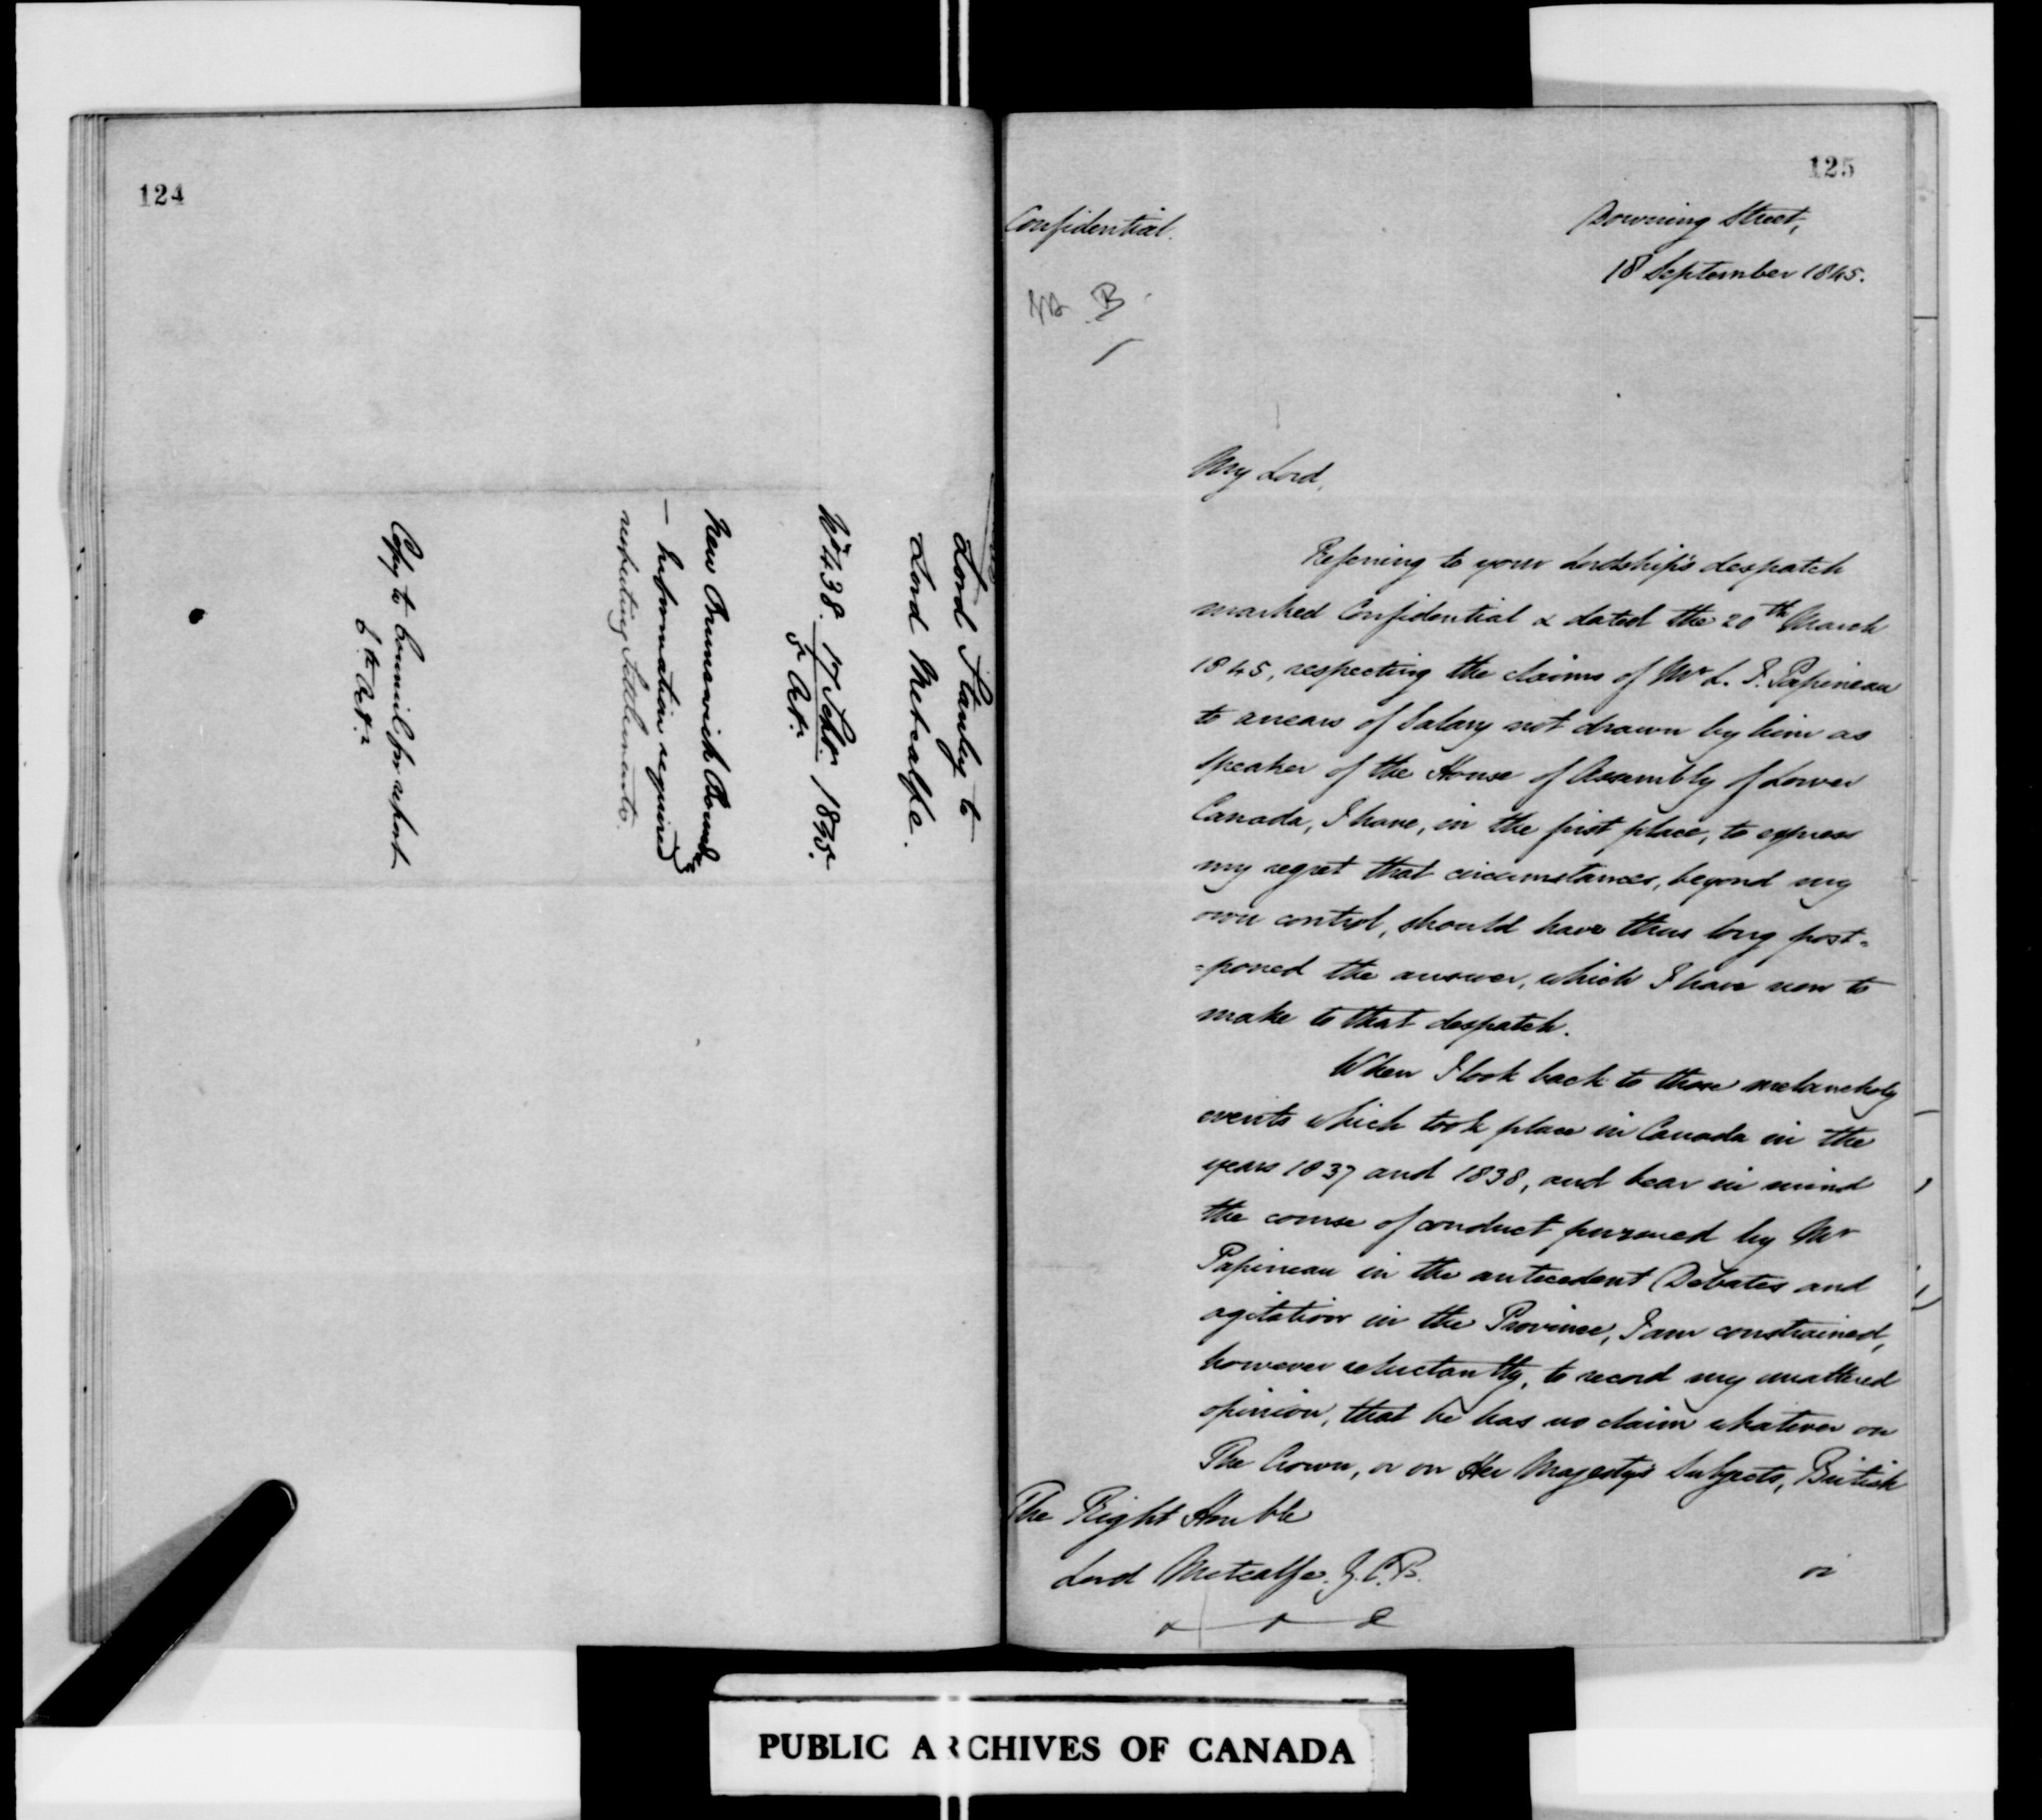 124
Lord Stanley to
Lord Metcalfe.
No 438. 17 Sept. 1845.
5 Oct.r
New Brunswick Boundy
— Information required
respecting Settlements.
Copy to Council for report
6th Oct.r
125
Confidential.
Downing Street,
18 September 1845.
B
My Lord,
Referring to your Lordship's despatch
marked Confidential & dated the 20th March
1845, respecting the claims of Mr L. J. Papineau
to arrears of Salary not drawn by him as
Speaker of the House of Assembly of Lower
Canada, I have, in the first place, to express
my regret that circumstances, beyond my
own control, should have thus long post=
=poned the answer, which I have now to
make to that despatch.
When I look back to those melancholy
events which took place in Canada in the
years 1837 and 1838, and bear in mind
the course of conduct pursued by Mr
Papineau in the antecedent Debates and
agitation in the Province, I am constrained,
however reluctantly, to record my unaltered
opinion, that he has no claim whatever on
The Crown, or on Her Majesty's Subjects, British
The Right Honble
Lord Metcalfe. G.C.B.
or
& & &
PUBLIC ARCHIVES OF CANADA